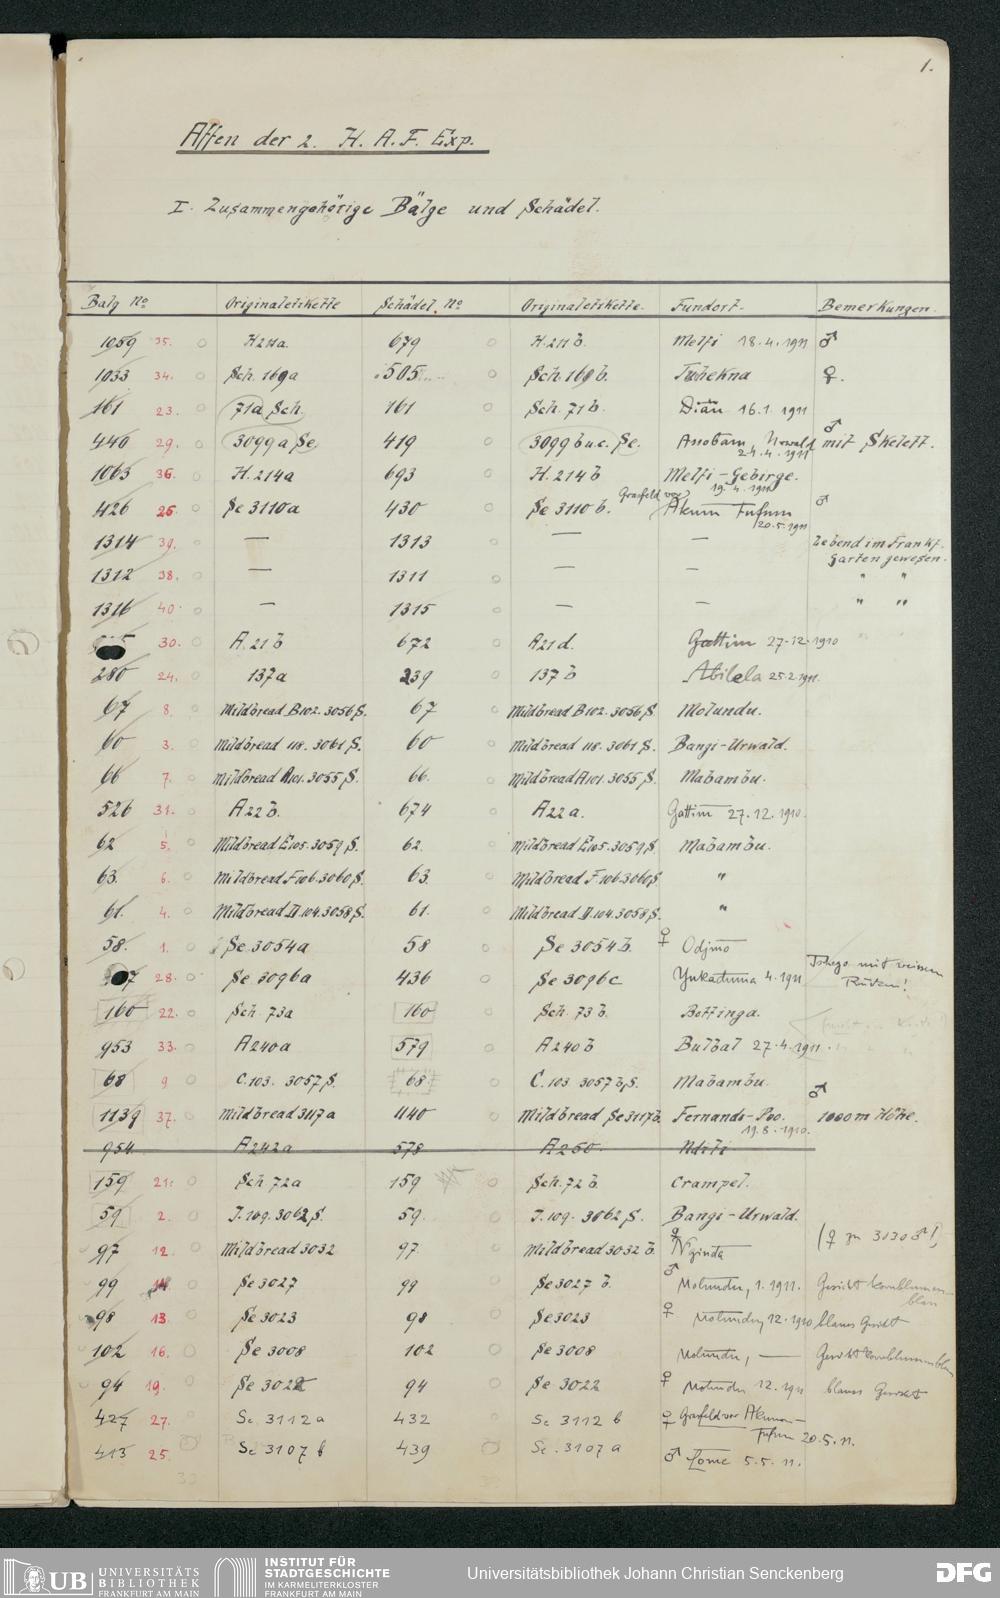 1.
Affen der 2. H. A. F. Exp.
I. Zusammengehörige Bälge und Schädel.
Balg No Originaletikette Schädel No Originaletikette. Fundort. Bemerkungen.
1059 35. H 211a. 679 H. 211 b. Melfi 18.4.1911 ♂
1033 34. Sch. 169a 505 Sch. 169 b. ♀.
161 23. 71a Sch. 161 Sch. 71 b. 16.1.1911
440 29. 3099 a Se. 419 3099 b u. c. Se. Urwald 24.4.1911 ♂ mit Skelett.
1063 36. H. 214a 693 H. 214 b Melfi-Gebirge. 19.4.1911
426 26. Se 3110a 430 Se 3110 b. Grasfeld vor Akum Fufum 20.5.1911 ♂
1314 39. — 1313 — — Lebend im Frankf. Garten gewesen.
1312 38. — 1311 — — " "
1316 40. — 1315 — — " "
30. A. 21 b 672 A21 d. Gattim 27.12.1910
280 24. 137a 239 137 b 25.2.1911.
67 8. Mildbread B 102. 3056 S. 67 Mildbread B 102. 3056 S. Molundu.
60 3. Mildbread 118. 3061 S. 60 Mildbread 118. 3061 S. Bangi-Urwald.
66 7. Mildbread A101. 3055 S. 66. Mildbread A101. 3055 S. Mabambu.
526 31. A 22 b. 674 A 22 a. Gattim 27.12.1910.
62 5. Mildbread E105. 3059 S. 62. Mildbread E105. 3059 S. Mabambu.
63. 6. Mildbread F 106. 3060 S. 63. Mildbread F 106. 3060 S "
61. 4. Mildbread D. 104. 3058 S. 61. Mildbread D. 104. 3058 S. "
58. 1. Se 3054a 58 Se 3054 b. ♀
7 28. Se 3096a 436 Se 3096c Yukaduma 4.1911 mit weissem Rücken!
160 22. Sch. 73a 160 Sch. 73 b. Bottinga.
953 33. A 240a 579 A 240 b Bulbal 27.4.1911.
68 9 C. 103. 3057 S. 68 C. 103 3057 b, S. Mabambu.
1139 37. Mildbread 3117a 1140 Mildbread Se 3117 b. Fernando-Poo. 19.8.1910. ♂ 1000 m Höhe.
954. A 242a 578 A 260. Ndiki
159 21. Sch 72a 159 Sch. 72 b. Crampel.
59 2. J. 109. 3062 S. 59. J. 109. 3062 S. Bangi-Urwald.
97 12. Mildbread 3032 97 Mildbread 3032 b. ♀ N'ginda (♀ zu 3030 ♂!)
99 14 Se 3027 99 Se 3027 b. ♂ Molundu, 1.1911. Gesicht kornblumenblau
98 13. Se 3023 98 Se 3023 ♀ Molundu, 12.1910 blaues Gesicht
102 16. Se 3008 102 Se 3008 Molundu, — Gesicht kornblumenblau
94 19. Se 3022 94 Se 3022 ♀ Molundu 12.1911 blaues Gesicht
427 27. Se 3112a 432 Se 3112 b ♀ Grasfeld vor Akum-Fufum 20.5.11.
413 25. Se 3107 b 439 Se. 3107 a ♂ 5.5.11.
UB UNIVERSITÄTS BIBLIOTHEK FRANKFURT AM MAIN
INSTITUT FÜR STADTGESCHICHTE IM KARMELITERKLOSTER FRANKFURT AM MAIN
Universitätsbibliothek Johann Christian Senckenberg
DFG